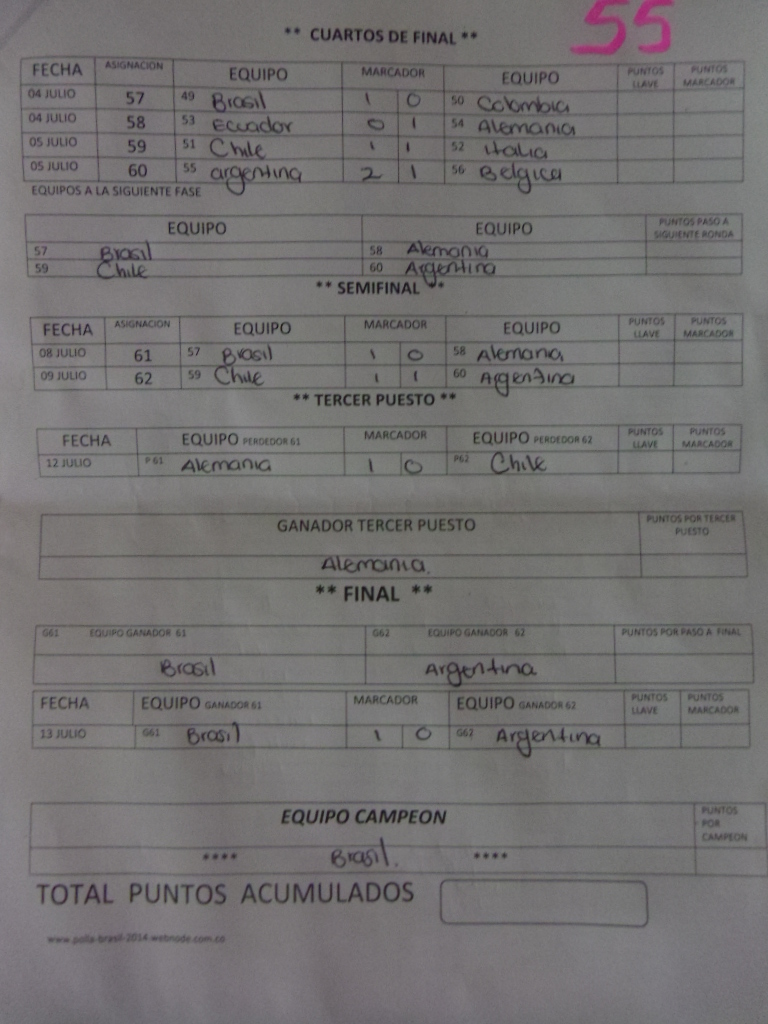 ** CUARTOS DE FINAL ** 55
FECHA ASIGNACION EQUIPO MARCADOR EQUIPO PUNTOS LLAVE PUNTOS MARCADOR
04 JULIO 57 49 Brasil 1 0 50 Colombia
04 JULIO 58 53 Ecuador 0 1 54 Alemania
05 JULIO 59 51 Chile 1 1 52 italia
05 JULIO 60 55 argentina 2 1 56 Belgica
EQUIPOS A LA SIGUIENTE FASE
EQUIPO EQUIPO PUNTOS PASO A SIGUIENTE RONDA
57 Brasil 58 Alemania
59 Chile 60 Argentina
** SEMIFINAL **
FECHA ASIGNACION EQUIPO MARCADOR EQUIPO PUNTOS LLAVE PUNTOS MARCADOR
08 JULIO 61 57 Brasil 1 0 58 Alemania
09 JULIO 62 59 Chile 1 1 60 Argentina
** TERCER PUESTO **
FECHA EQUIPO PERDEDOR 61 MARCADOR EQUIPO PERDEDOR 62 PUNTOS LLAVE PUNTOS MARCADOR
12 JULIO P61 Alemania 1 0 P62 Chile
GANADOR TERCER PUESTO PUNTOS POR TERCER PUESTO
Alemania.
** FINAL **
G61 EQUIPO GANADOR 61 G62 EQUIPO GANADOR 62 PUNTOS POR PASO A FINAL
Brasil Argentina
FECHA EQUIPO GANADOR 61 MARCADOR EQUIPO GANADOR 62 PUNTOS LLAVE PUNTOS MARCADOR
13 JULIO G61 Brasil 1 0 G62 Argentina
EQUIPO CAMPEON PUNTOS POR CAMPEON
**** Brasil. ****
TOTAL PUNTOS ACUMULADOS
www.polla-brasil-2014.webnode.com.co